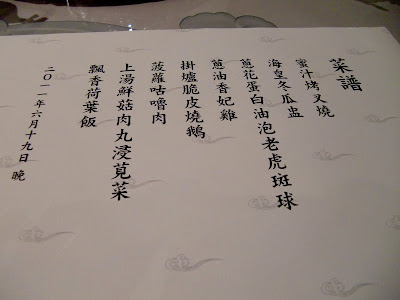 菜譜
蜜汁烤叉燒
海皇冬瓜盅
蔥花蛋白油泡老虎斑球
蔥油香妃雞
掛爐脆皮燒鵝
菠蘿咕嚕肉
上湯鮮菇肉丸浸莧菜
飄香荷葉飯
二〇一一年六月十九日 晚